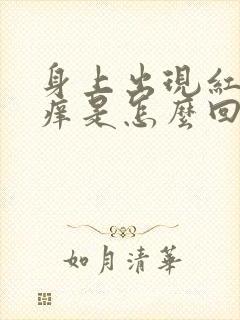 身上出現紅
痒是怎麼回
如月清華